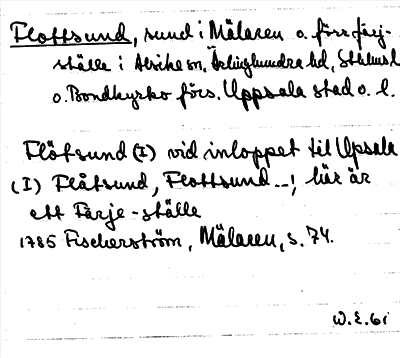 Flottsund, sund i Mälaren o. förr färj-
ställe i Alsike sn, Ärlinghundra hd, Sthlms l.
o. Bondkyrko förs. Uppsala stad o. l.
Flötsund (I) vid inloppet til Upsala
(I) Flåtsund, Flottsund --, här är
ett Färje-ställe
1785 Fischerström, Mälaren, s. 74.
W.E. 61